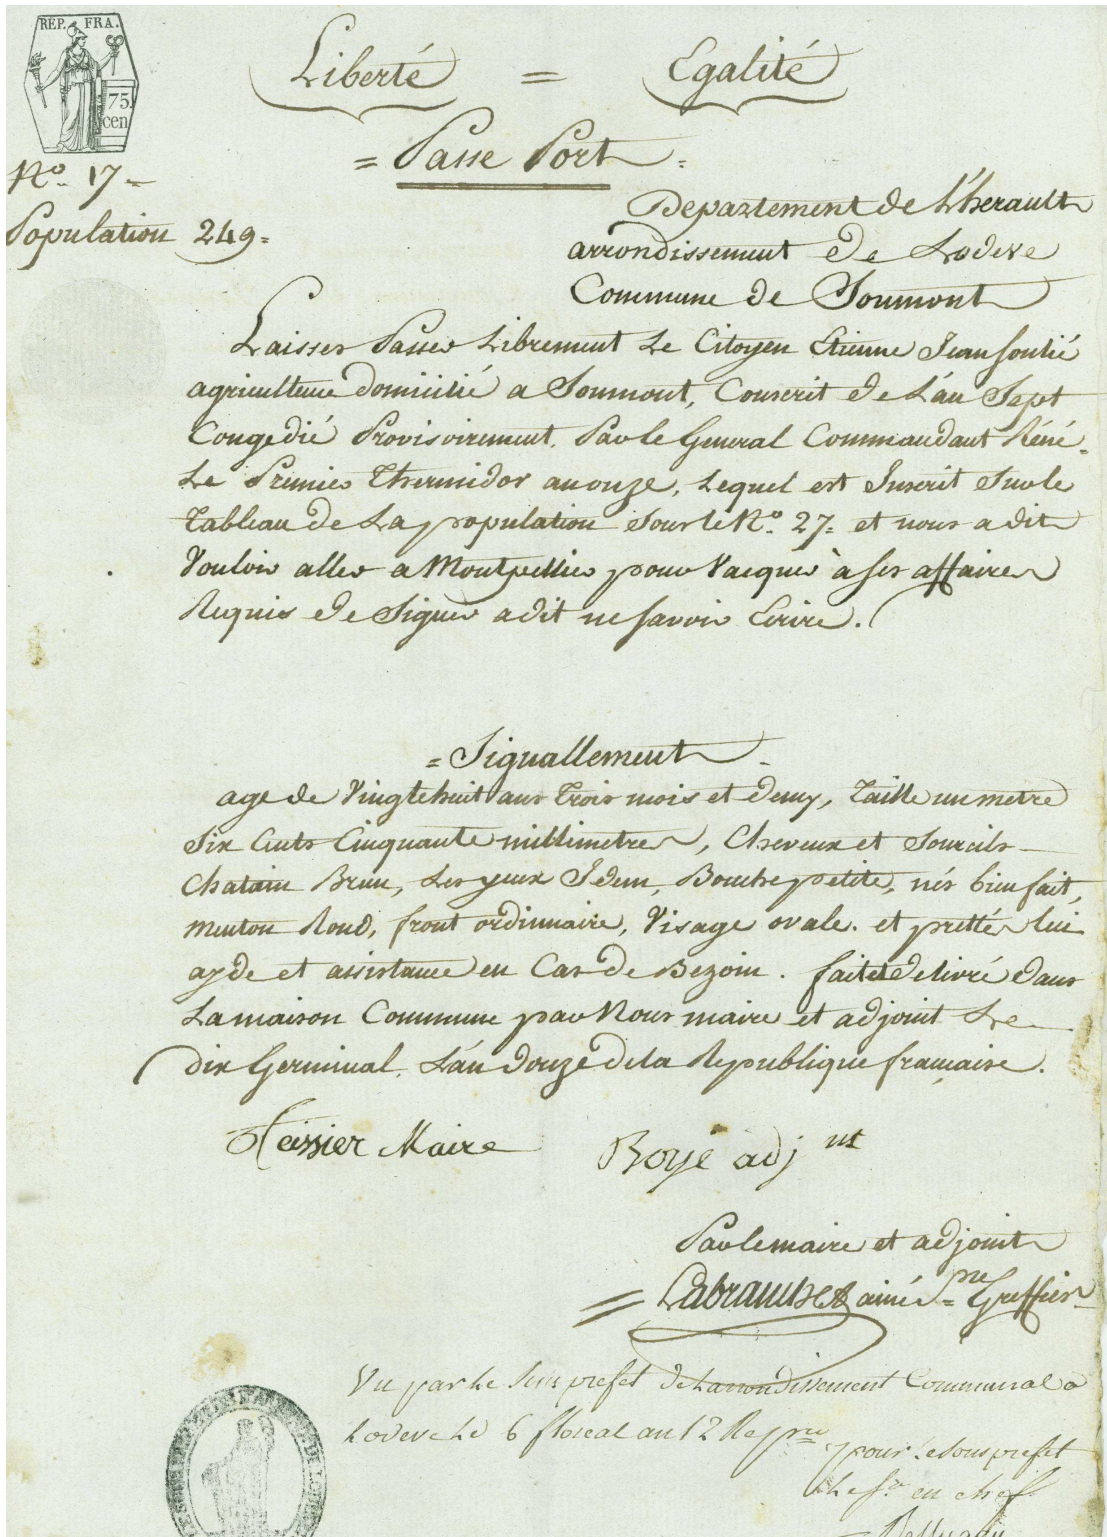 REP. FRA.
75.
cen
Liberté = Egalité
= Passe Port =
No. 17 =
Population 249 =
Departement de L'herault
arrondissement de Lodeve
Commune de Soumont
Laisser Passer Librement Le Citoyen Etienne Jean Soulié
agriculteur domicilié a Soumont, Conscrit de L'an Sept
Congedié Provisoirement. Par le General Commandant Réné
Le Premier Thermidor an onze, Lequel est Inscrit Sur le
Tableau de La population Sous le No. 27 = et nous a dit
Vouloir aller a Montpellier pour Vacquer à ses affaires
Requis de Signer a dit ne savoir Ecrire.
= Signallement =
age de Vingt huit ans Trois mois et demy, Taille un metre
Six Cents Cinquante millimetres, Cheveux et Sourcils
Chatain Brun, Les yeux Idem, Bouche petite, nés bien fait,
menton Rond, front ordinnaire, Visage ovale. et prettés lui
ayde et assistance en Cas de Bezoin. fait et delivré dans
La maison Commune par Nous maire et adjoint Le
dix Germinal. L'an douze de la Republique francaise.
Teissier Maire Boyé adj nt
Par le maire et adjoint
= aîné = Greffier
Vu par Le Sous prefet de Larrondissement Communal a
Lodeve Le 6 floreal an 12 Repu
pour Le sous prefet
en chef